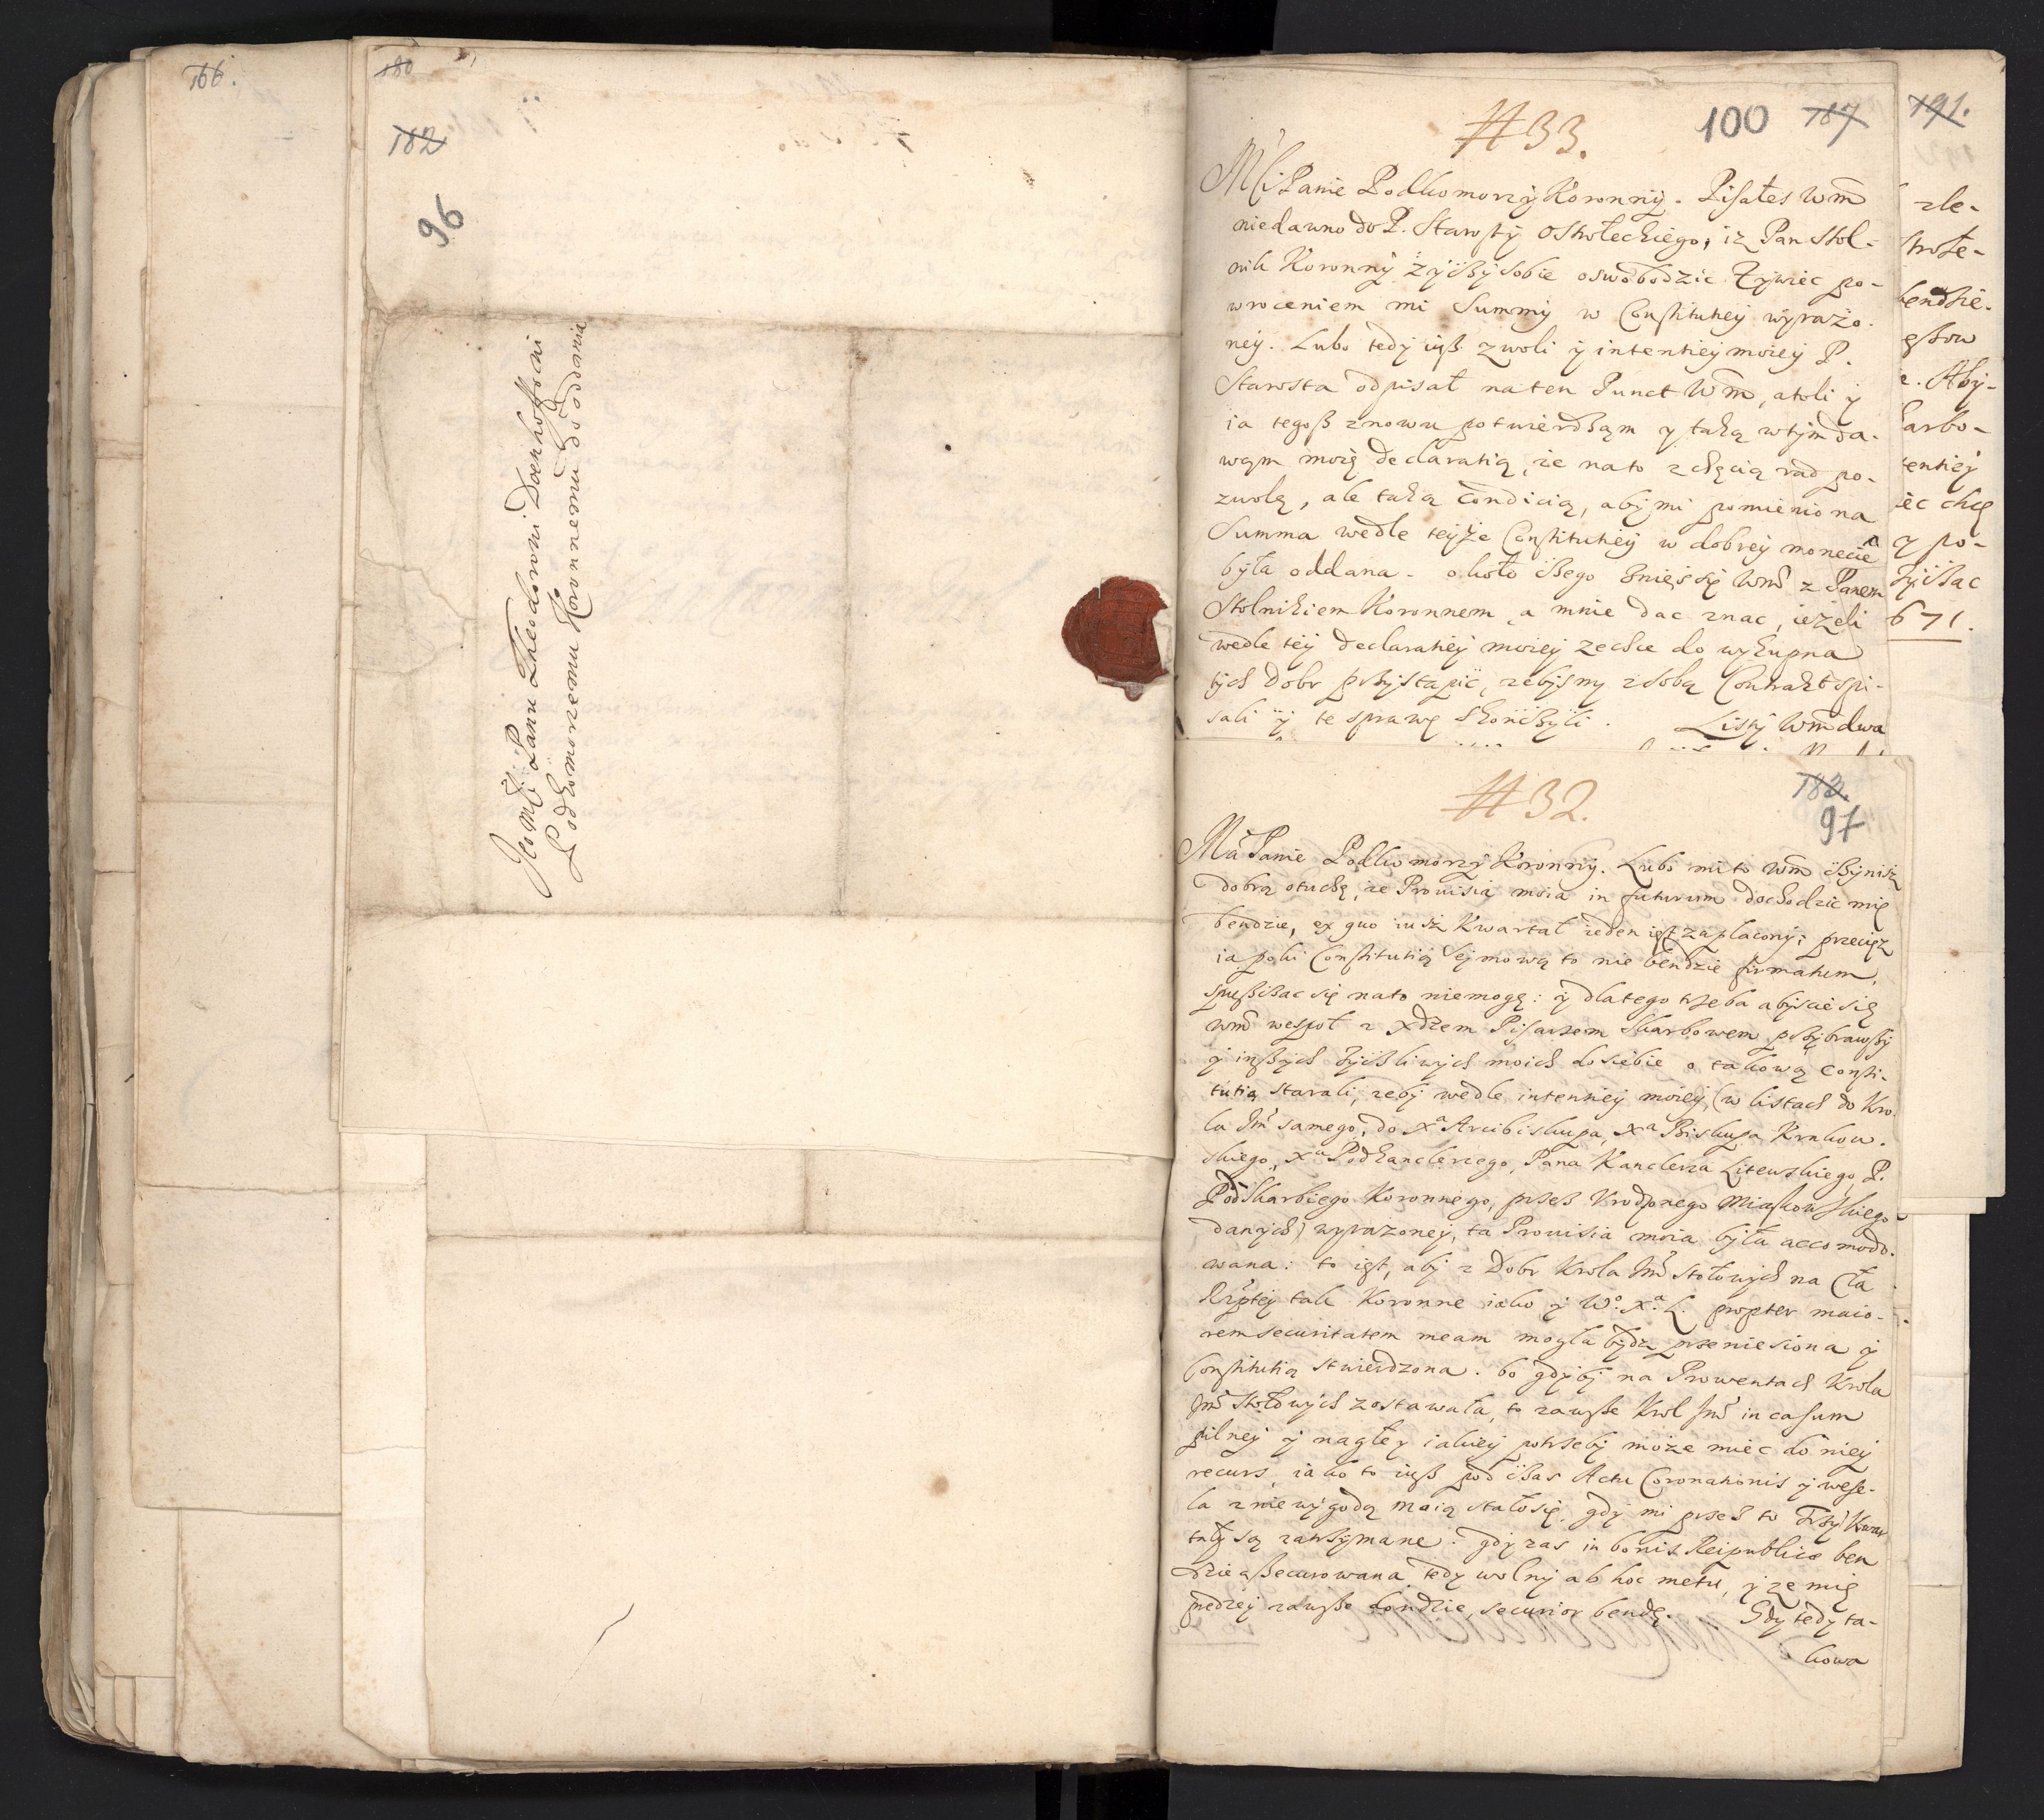 166.
180
182
96
Jeo Mći Panu Theodorowi Doenhoffowi
Podkomorzemu Koronnemu do oddania
#33.
100 187
Mći Panie Podkomorzÿ Koronnÿ. Pisałes Wm̃
niedawno do P. Starostÿ Ostrołeckiego, iz Pan Stol-
nik Koronnÿ zÿcżÿ sobie oswobodzic Zÿwiec po-
wroceniem mi Summÿ w Constitutieÿ wÿrażo-
neÿ. Lubo tedy iuß z woli ÿ intentieÿ moieÿ P.
Starosta odpisał na ten Punct Wm̃, atoli ÿ
ia tegoß znowu potwierdzam y taką w tÿm da-
wąm moię declaratią, ze na to z chęcią rad po-
zwolę, ale taką condicią, abÿ mi pomieniona
Summa wedle teÿże Constitutieÿ w dobreÿ monecie
bÿła oddana. około czego znieś się Wm̃ z Panem
Stolnikiem Koronnem, a mnie dac znac, ieżeli
wedle teÿ declaratieÿ moieÿ zechce do wykupna
tÿch dobr przÿstąpic, zebÿsmy z sobą Contrakt spi-
sali ÿ te sprawę skonczÿli. Listÿ Wm̃ dwa
191.
zle-
trołe-
bendzie-
. Abÿ-
karbo-
tentieÿ
iec chcę
y po-
zÿczac
671.
#32.
183.
97
Mći Panie Podkomorzÿ Koronnÿ. Lubo mi to Wm̃ czÿnisz
dobrą otuchę, ze Prouisia moia in futurum dochodzic mię
bendzie, ex quo iusz Kwartał ieden iest zapłaconÿ; przecięz
ia poki Constitutią Seÿmową to nie bendzie firmatum,
spußczac się na to niemogę: ÿ dlatego trzeba abÿscie się
Wm̃ wespoł z Xdzem Pisarzem Skarbowem przÿbrawszÿ
ÿ inszÿch zÿczliwÿch moich do siebie o takową Consti-
tutią starali, zebÿ wedle intentieÿ moieÿ (w listach do Kro-
la Jm̃ samego, do Xa Arcibiskupa, Xa Biskupa Krakow-
skiego, Xa Podkanclerzego, Pana Kanclerza Litewskiego, P.
Podskarbiego Koronnego, przez Vrodzonego Miaskowskiego
danÿch) wyrazoneÿ, ta Prouisia moia bÿła accomodo-
wana: to iest, abÿ z Dobr Krola Jm̃ stołowÿch na Cła
Rzptej tak Koronne iako ÿ Wo. Xa. L. propter maio-
rem securitatem meam mogła bÿdz przeniesiona ÿ
Constitutią stwierdzona. bo gdÿbÿ na Prowentach Krola
Jm̃ Stołowÿch zostawała, to zawsze Krol Jm̃ in casum
pilneÿ ÿ nagłey iakieÿ potrzebÿ może miec do nieÿ
recurs, iako to iuß pod czas Actu Coronationis ÿ wese-
la z niewÿgodą moią stało się, gdÿ mi przez to Trzÿ Kwar
tałÿ są zatrzÿmane. gdÿ zas in bonis Reipublicæ ben
dzie assecurowana tedy wolnÿ ab hoc metu, ÿ ze mię
prędzeÿ zawsze doÿdzie, securior bendę. Gdy tedy ta-
kowa